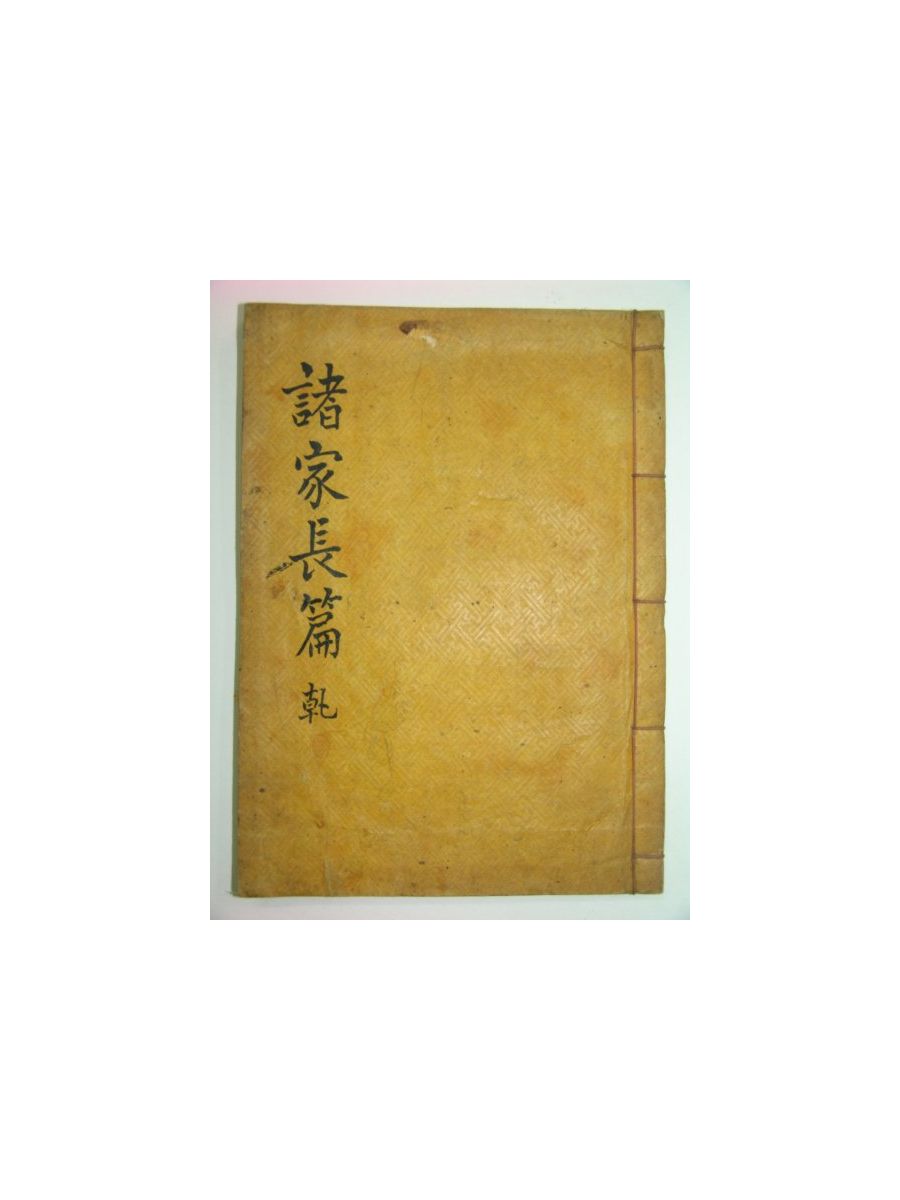 諸家長篇 乾